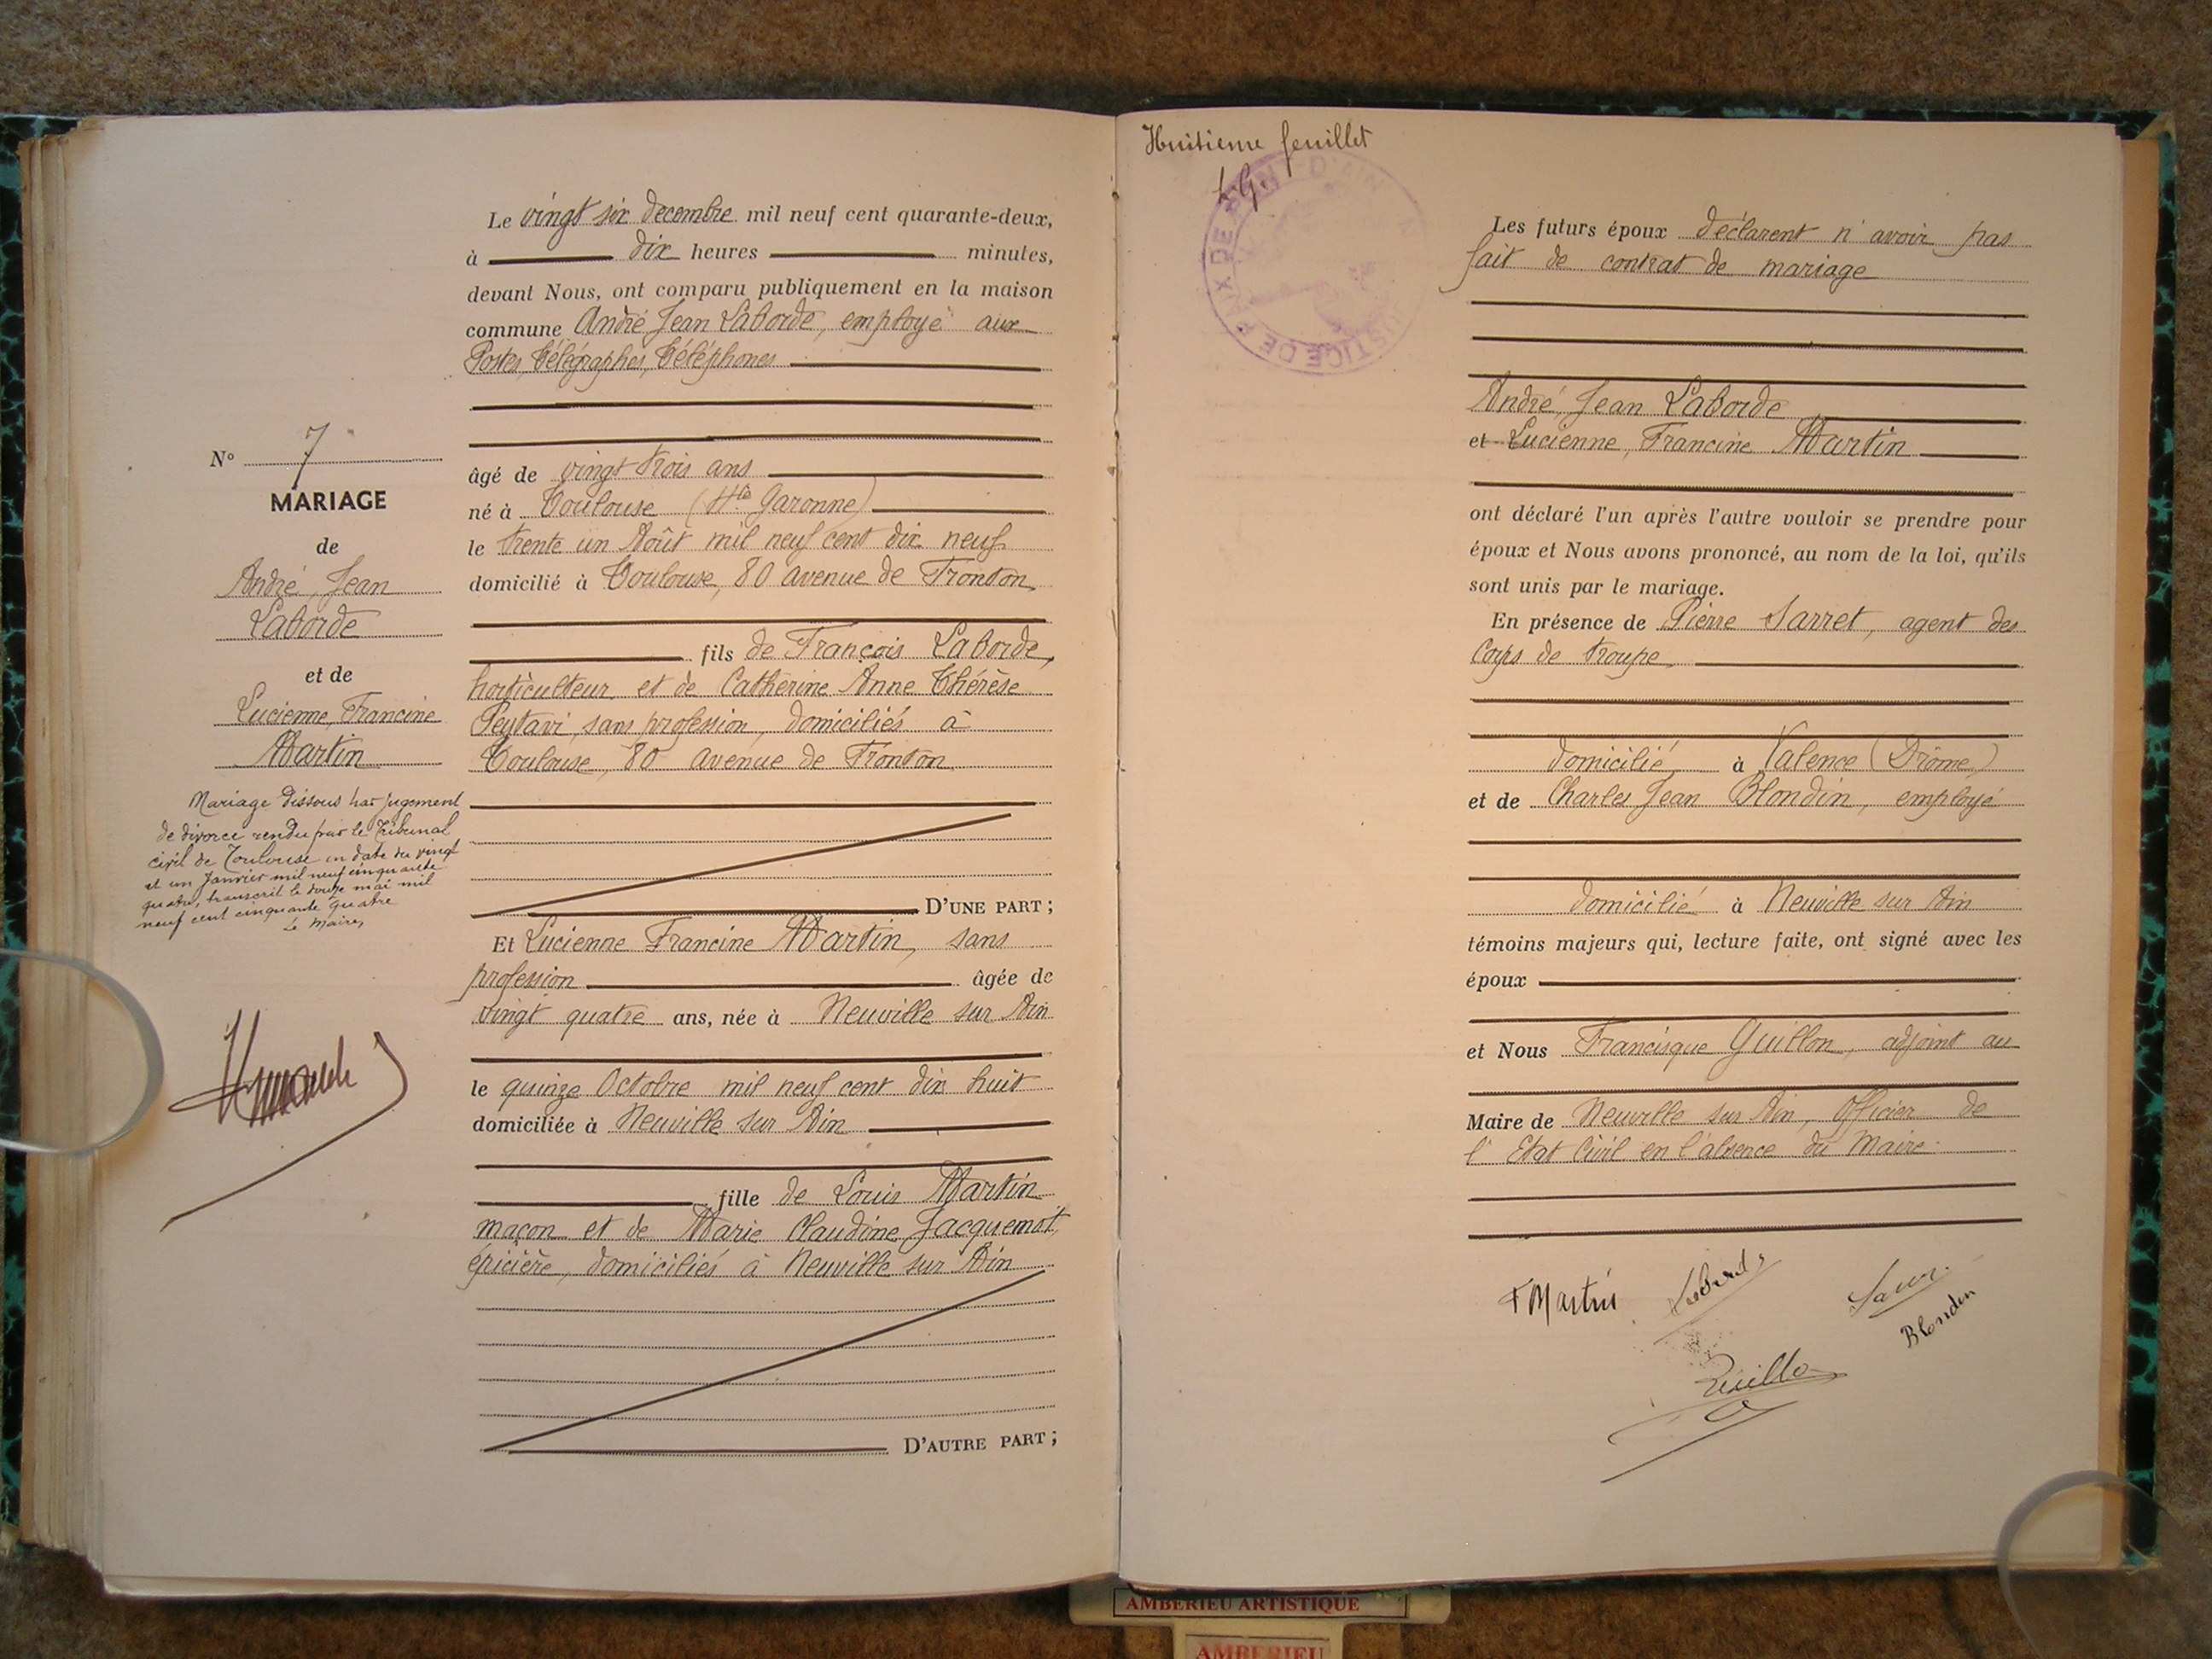 Le vingt six decembre mil neuf cent quarante-deux,
à dix heures minutes,
devant Nous, ont comparu publiquement en la maison
commune André Jean Laborde, employé aux
Postes, Télégraphes, Téléphones
âgé de vingt trois ans
né à Toulouse (Hte Garonne)
le trente un Août mil neuf cent dix neuf
domicilié à Toulouse, 80 avenue de Fronton
fils de François Laborde,
horticulteur et de Catherine Anne Thérèse
Peytavi, sans profession, domiciliés à
Toulouse, 80 avenue de Fronton
D'UNE PART ;
Et Lucienne Francine Martin, sans
profession âgée de
vingt quatre ans, née à Neuville sur Ain
le quinze Octobre mil neuf cent dix huit
domiciliée à Neuville sur Ain
fille de Louis Martin
maçon et de Marie Claudine Jacquemot,
épicière, domiciliés à Neuville sur Ain
D'AUTRE PART ;
No 7
MARIAGE
de
André, Jean
Laborde
et de
Lucienne, Francine
Martin
Mariage dissous par jugement
de divorce rendu par le Tribunal
civil de Toulouse en date du vingt
et un Janvier mil neuf cinquante
quatre, transcrit le douze mai mil
neuf cent cinquante quatre
Le Maire,
Huitieme feuillet
L.G.
JUSTICE DE PAIX DE PONT D'AIN
Les futurs époux déclarent n'avoir pas
fait de contrat de mariage
André, Jean Laborde
et Lucienne, Francine Martin
ont déclaré l'un après l'autre vouloir se prendre pour
époux et Nous avons prononcé, au nom de la loi, qu'ils
sont unis par le mariage.
En présence de Pierre Sarret, agent des
Corps de troupe
domicilié à Valence (Drôme)
et de Charles Jean Blondin, employé
domicilié à Neuville sur Ain
témoins majeurs qui, lecture faite, ont signé avec les
époux
et Nous Francisque Guillon, adjoint au
Maire de Neuville sur Ain, Officier de
l'Etat Civil en l'absence du Maire.
F Martin
Blondin
AMBERIEU ARTISTIQUE
AMBERIEU